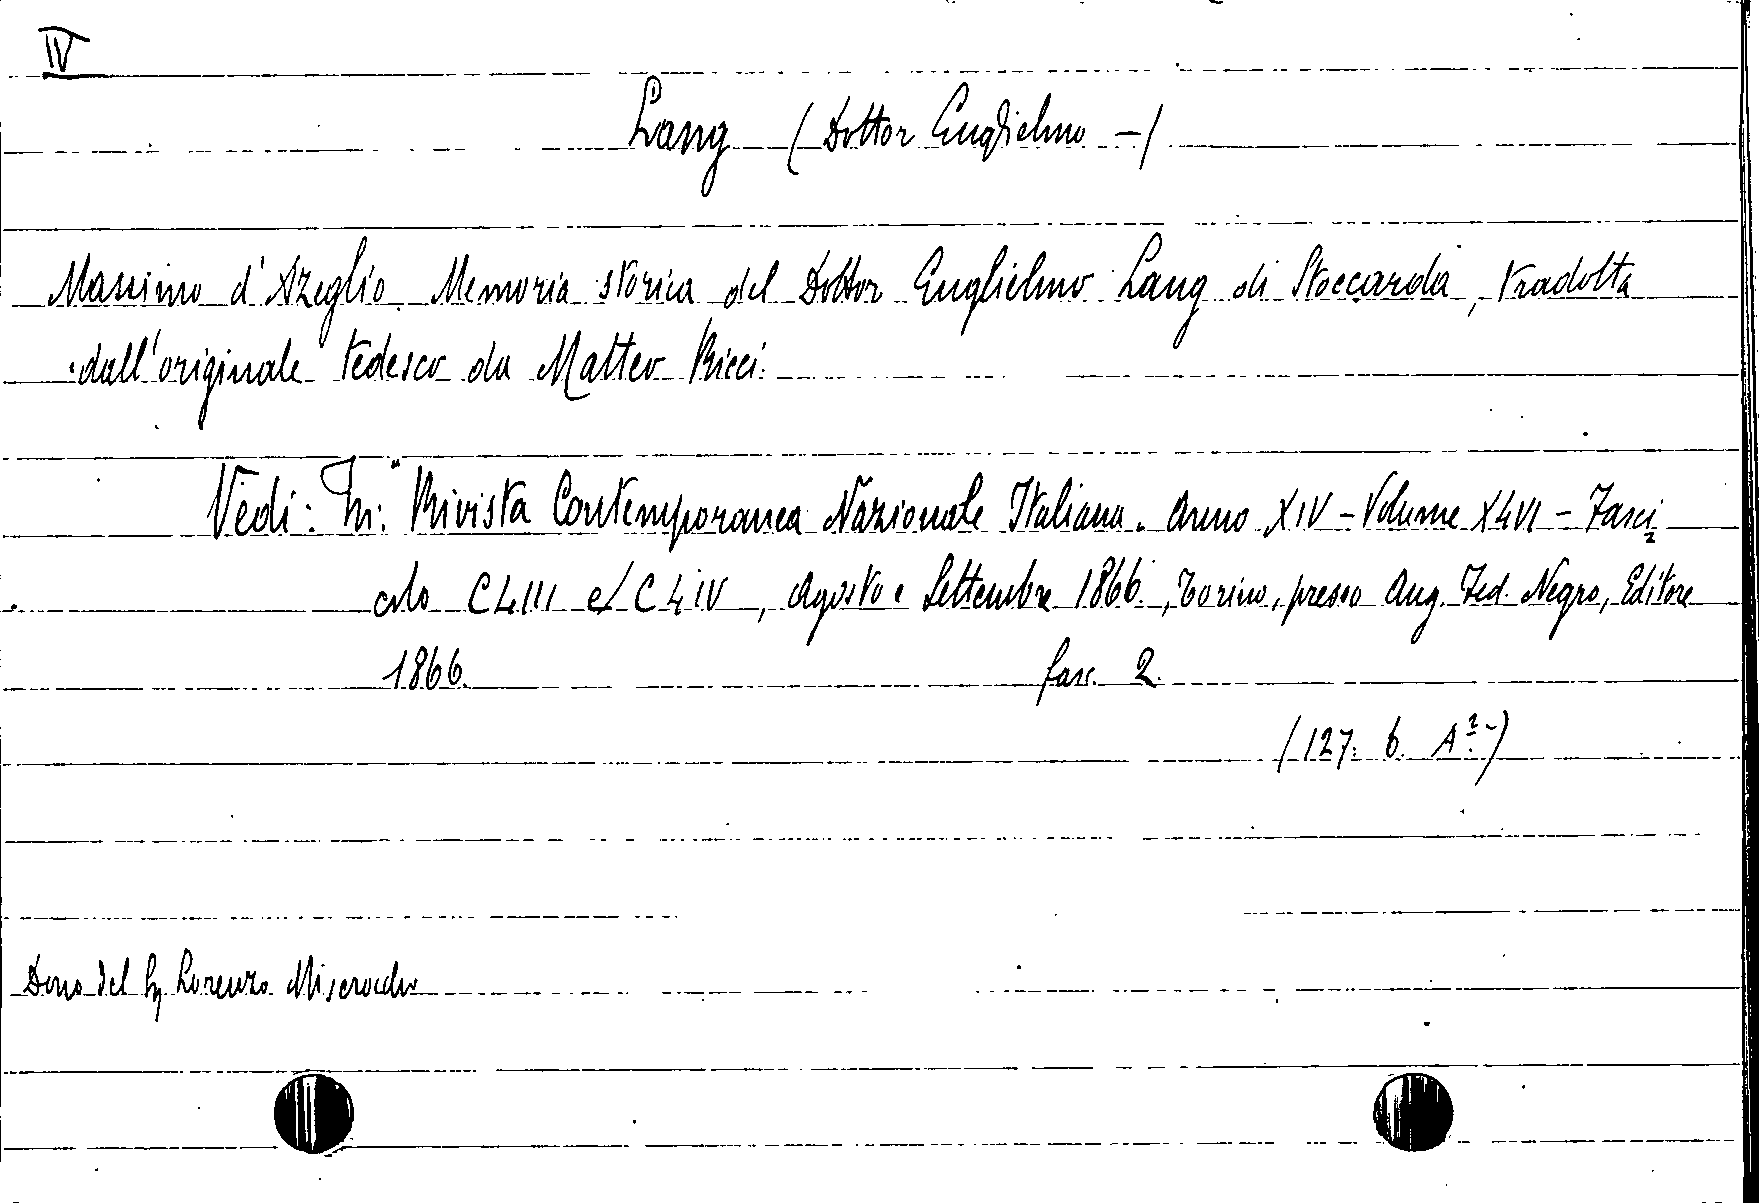 IV
Lang (Dottor Guglielmo -)
Massimo d'Azeglio. Memoria storica del Dottor Guglielmo Lang di Stoccarda, tradotta
dall'originale tedesco da Matteo Ricci.
Vedi: In: "Rivista Contemporanea Nazionale Italiana. Anno XIV - Volume XLVI - Fasci=
colo CLIII e CLIV, Agosto e Settembre 1866., Torino, presso Aug. Fed. Negro, Editore
1866. fasc. 2.
(127. 6. A².-)
Dono del Lorenzo Miserocchi